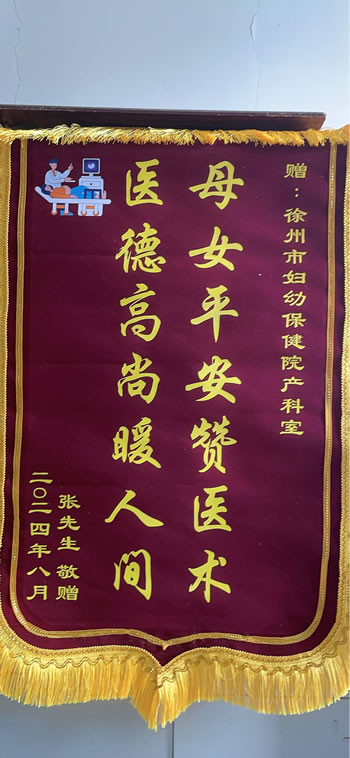 赠：徐州市妇幼保健院产科室
母女平安赞医术
医德高尚暖人间
张先生 敬赠
二〇二四年八月